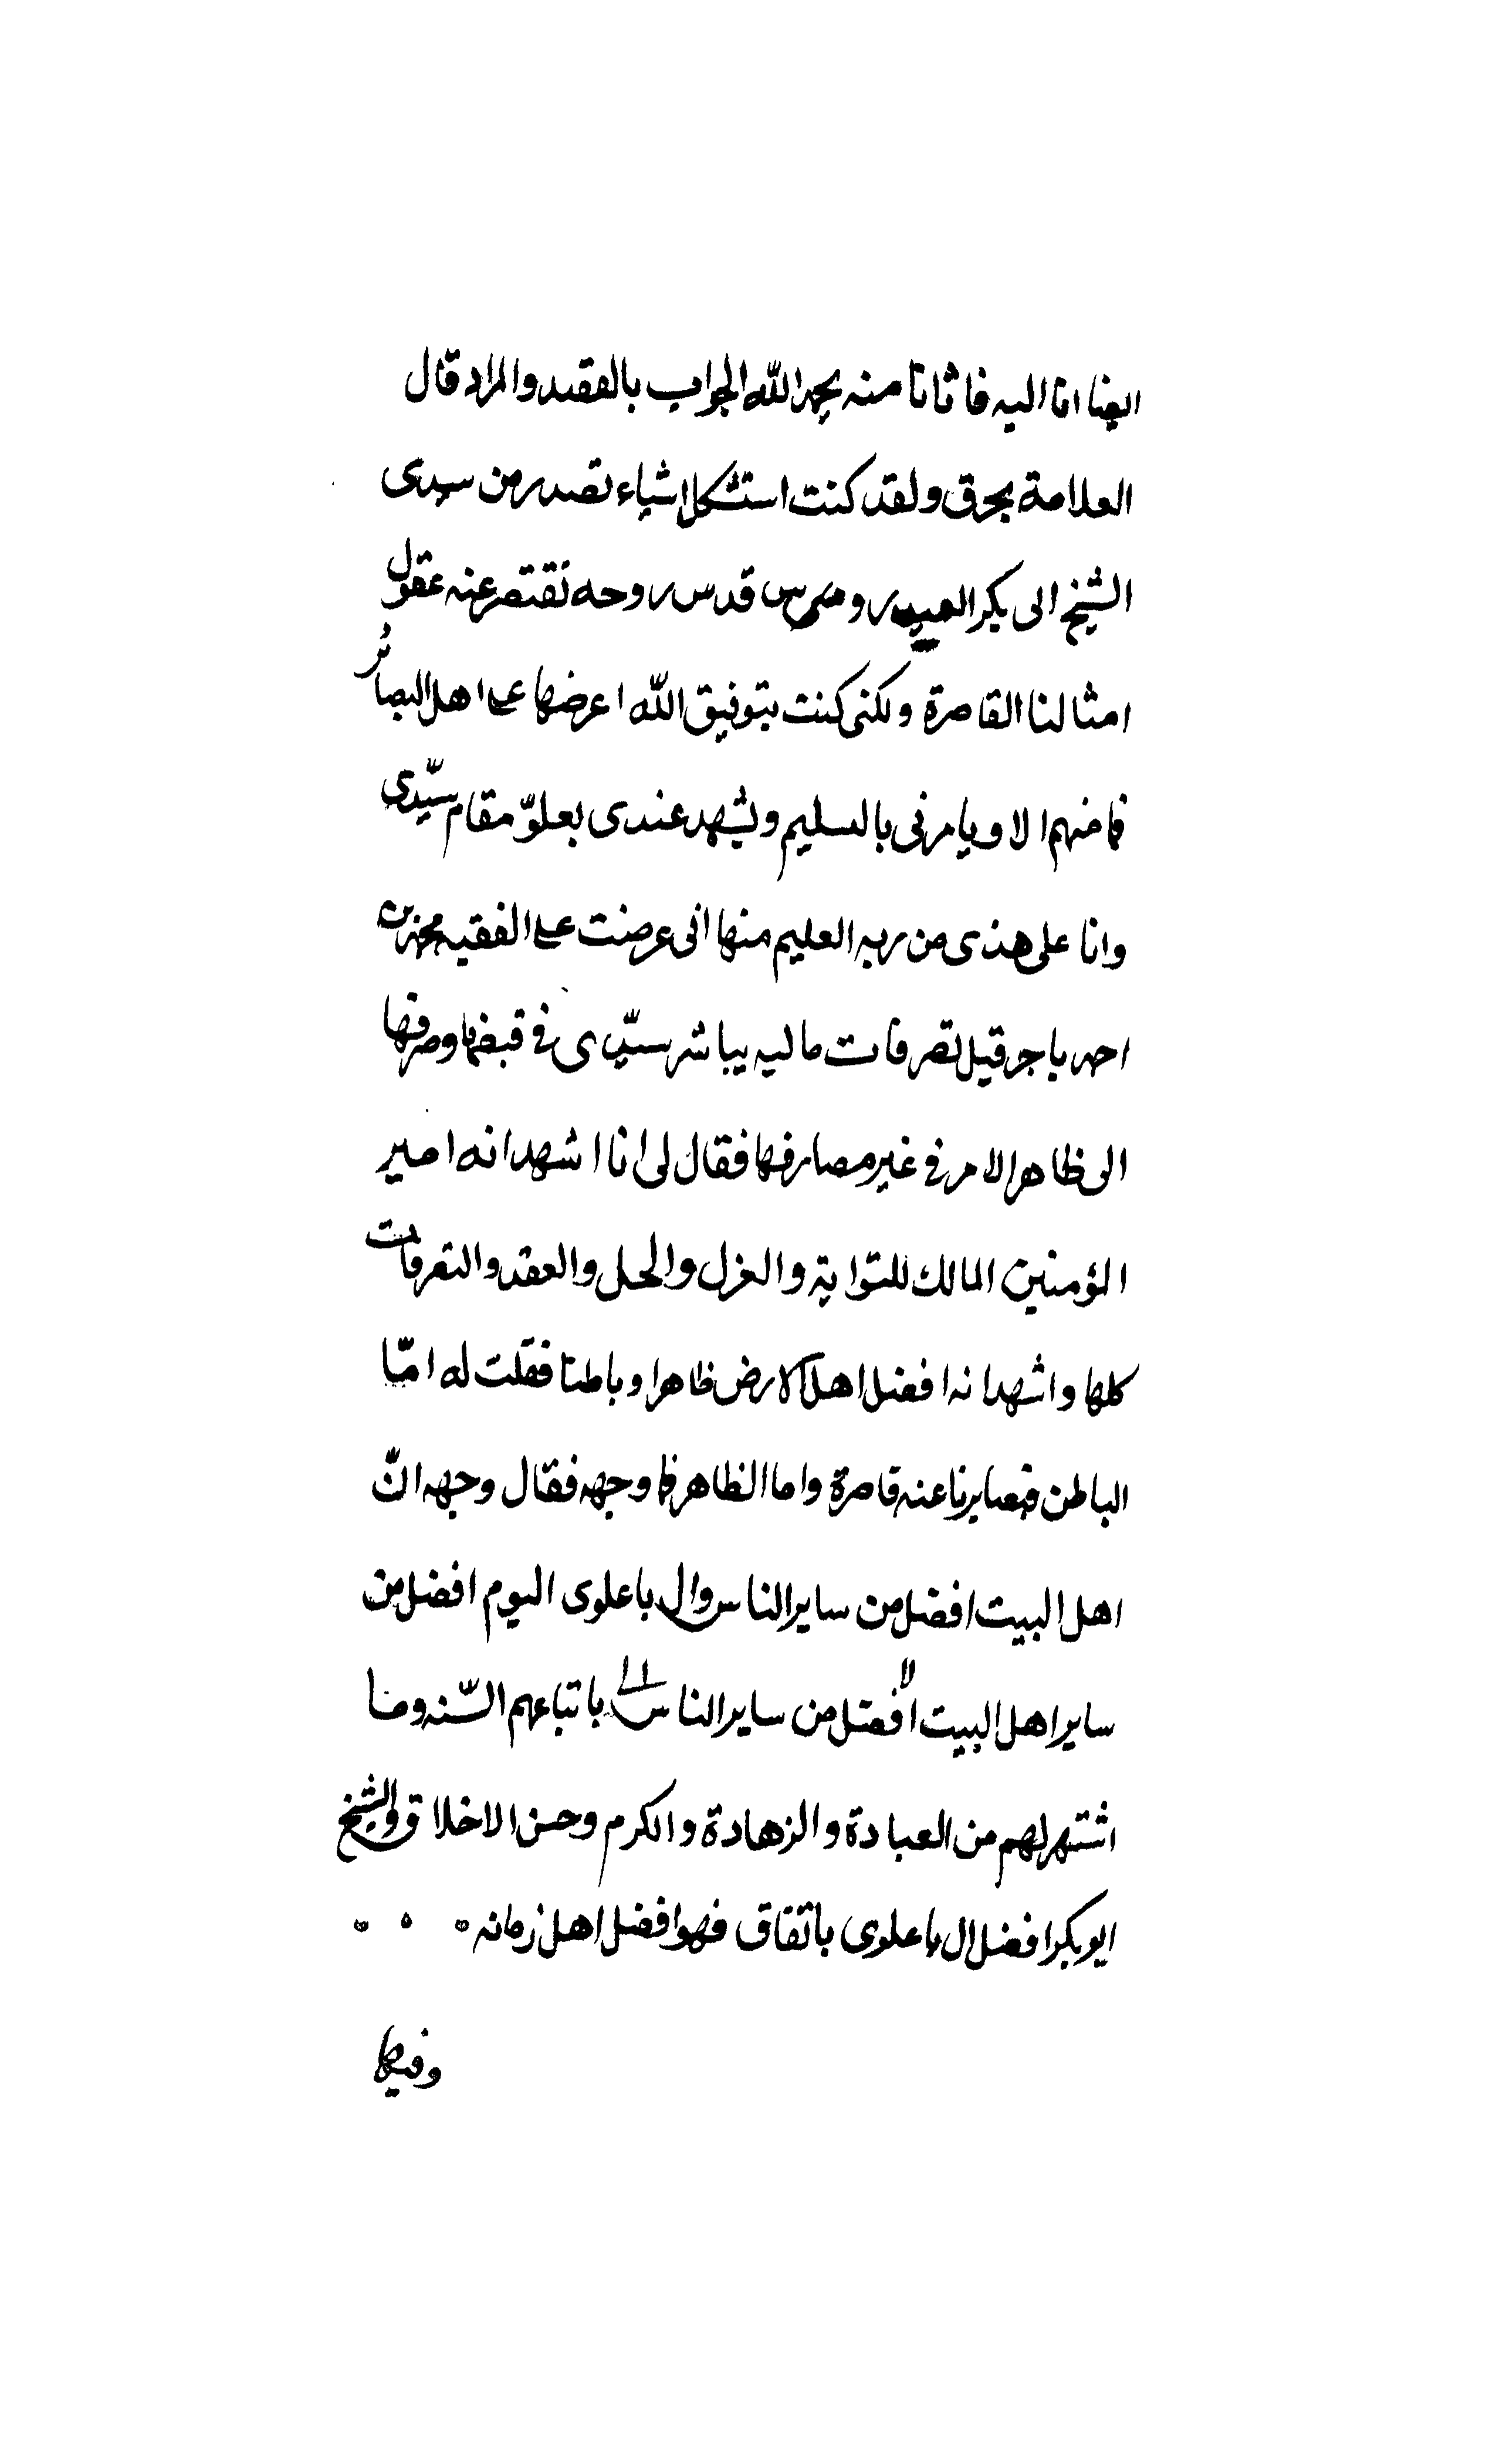 ايضا انا اليه فاثانا منه بحمد الله الجواب بالقصد والمراد قال
العلامة بحرق ولقد كنت استشكل اشياء تصدر من سيدى
الشيخ ابى بكر العيدروس قدس روحه تقتصر عنه عقول
امثالنا القاصرة ولكنى كنت بتوفيق الله اعرضها على اهل البصائر
فما منهم الا ويامرنى بالتسليم ويشهد عندى بعلوّ مقام سيّدى
وانا على هدى من ربه العليم منها انى عرضت على الفقيه محمد بن
احمد باجرفيل تصرفات ماليه يباشر سيّدى فى قبضها وصرفها
الى ظاهر الامر فى غير مصارفها فقال لى انا اشهد انه امير
المؤمنين المالك للتولية والعزل والحل والعقد والتصرفات
كلها واشهد انه افضل اهل الارض ظاهرا وباطنا فقلت له امّا
الباطن فبصايرنا عنه قاصرة واما الظاهر فما وجهه فقال وجهه انّ
اهل البيت افضل من ساير الناس وال باعلوى اليوم افضل من
ساير اهل البيت لا افضل من ساير الناس الى باتباعهم السّنه وما
اشتهر لهم من العبادة والزهادة والكرم وحسن الاخلاق والشيخ
ابو بكر افضل ال باعلوى باتفاق فهو افضل اهل زمانه
وفيها